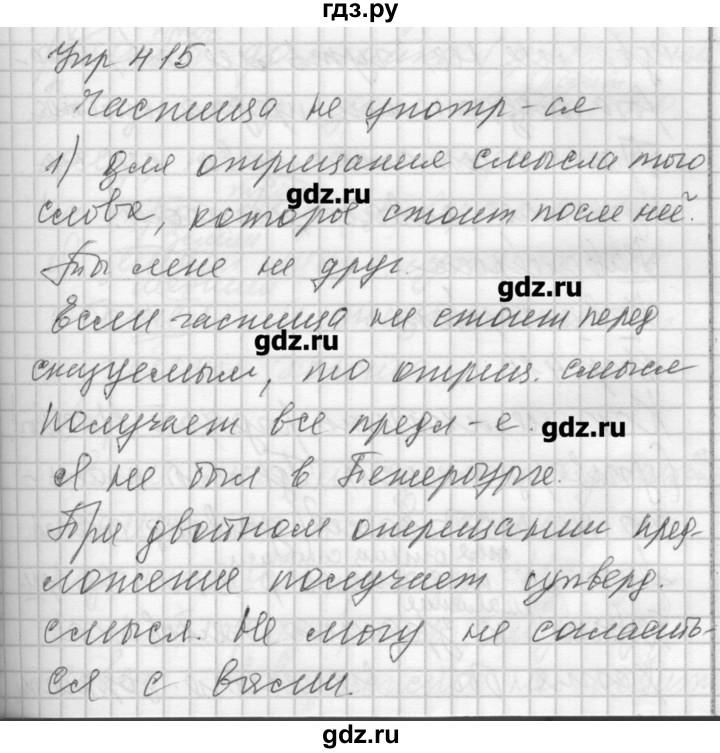 гдз.ру
Упр 415
Частица не употр-ся
1) для отрицания смысла того
слова, которое стоит после ней.
gdz.ru
Ты мне не друг.
gdz.ru
Если частица не стоит перед
gdz.ru
сказуемым, то отриц. смысл
получает все предл-е.
gdz.ru
Я не был в Петербурге.
При двойном отрицании пред-
ложение получает утверд.
смысл. Не могу не согласить-
ся с вами.
gdz.ru